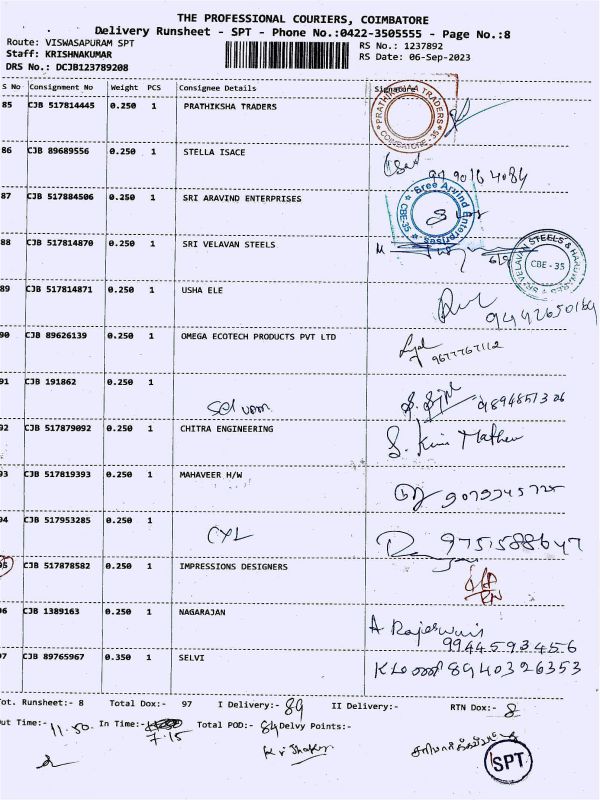 THE PROFESSIONAL COURIERS, COIMBATORE
Delivery Runsheet - SPT - Phone No.:0422-3505555 - Page No.:8
Route: VISWASAPURAM SPT
RS No.: 1237892
Staff: KRISHNAKUMAR
RS Date: 06-Sep-2023
DRS No.: DCJB123789208
S No Consignment No Weight PCS Consignee Details Signature
85 CJB 517814445 0.250 1 PRATHIKSHA TRADERS
PRATHIKSHAA TRADERS COIMBATORE - 35
86 CJB 89689556 0.250 1 STELLA ISACE
87 CJB 517884506 0.250 1 SRI ARAVIND ENTERPRISES
Sree Arvind Enterprises CBE-35
88 CJB 517814870 0.250 1 SRI VELAVAN STEELS
SRI VELAVAN STEELS & HARDWARES CBE - 35
89 CJB 517814871 0.250 1 USHA ELE
9442650169
90 CJB 89626139 0.250 1 OMEGA ECOTECH PRODUCTS PVT LTD
9677767112
91 CJB 191862 0.250 1
Selvam
92 CJB 517879092 0.250 1 CHITRA ENGINEERING
93 CJB 517819393 0.250 1 MAHAVEER H/W
94 CJB 517953285 0.250 1
CXL
9751588647
95 CJB 517878582 0.250 1 IMPRESSIONS DESIGNERS
96 CJB 1389163 0.250 1 NAGARAJAN
A Rajeswari
9944593456
97 CJB 89765967 0.350 1 SELVI
8940326353
Tot. Runsheet:- 8 Total Dox:- 97 I Delivery:- 89 II Delivery:- RTN Dox:- 8
Out Time:- 11.50. In Time:- 7.15 Total POD:- 84 Delvy Points:-
SPT